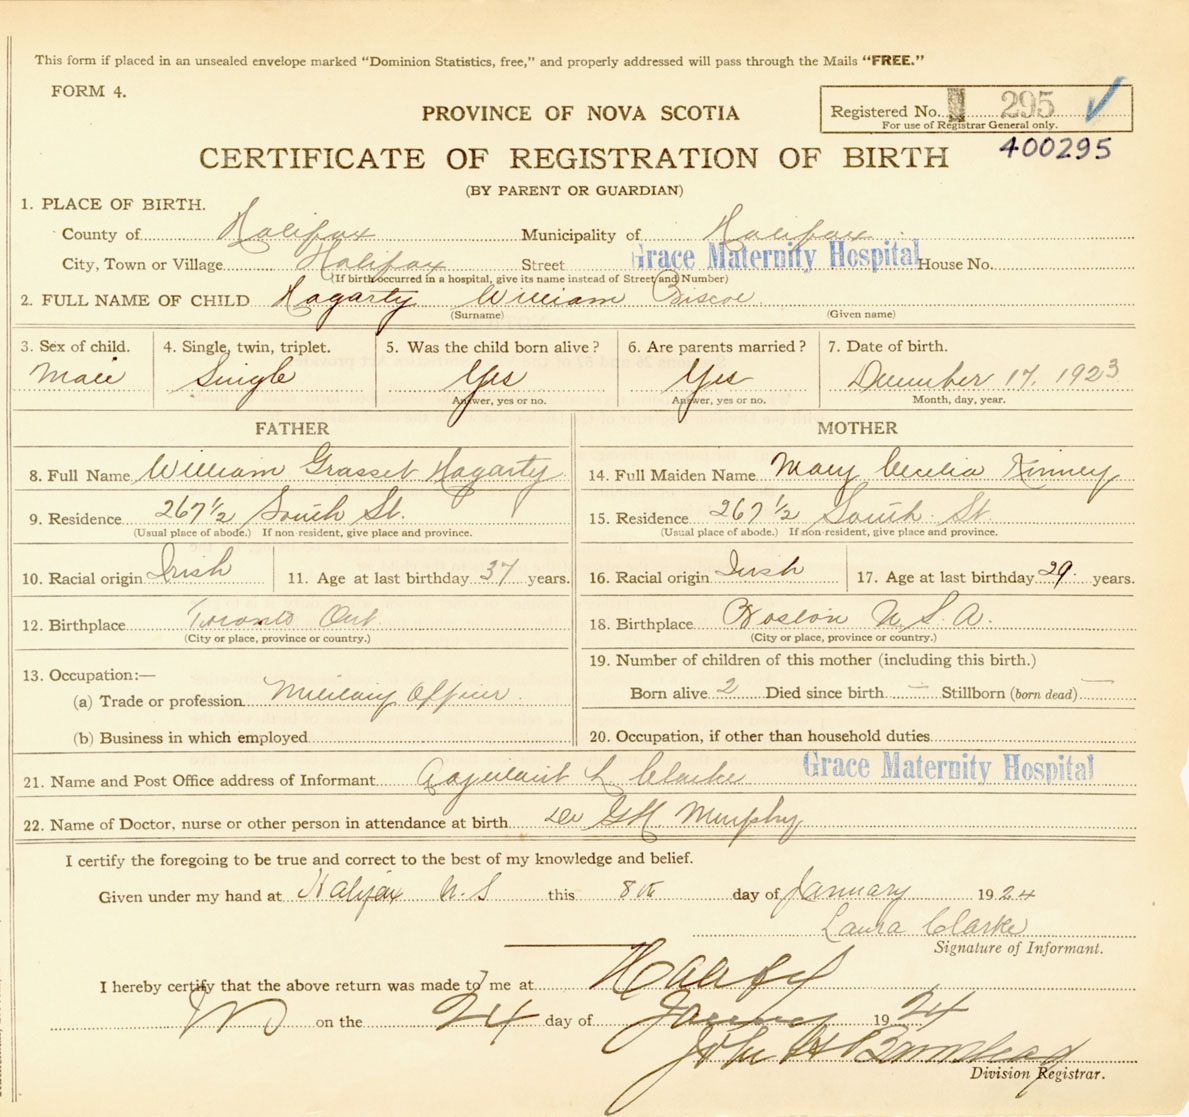 This form if placed in an unsealed envelope marked "Dominion Statistics, free," and properly addressed will pass through the Mails "FREE."
FORM 4.
PROVINCE OF NOVA SCOTIA
Registered No. 295
For use of Registrar General only.
400295
CERTIFICATE OF REGISTRATION OF BIRTH
(BY PARENT OR GUARDIAN)
1. PLACE OF BIRTH.
County of Halifax Municipality of Halifax
City, Town or Village Halifax Street Grace Maternity Hospital House No.
(If birth occurred in a hospital, give its name instead of Street and Number)
2. FULL NAME OF CHILD Hagarty William Biscoe
(Surname) (Given name)
3. Sex of child. 4. Single, twin, triplet. 5. Was the child born alive? 6. Are parents married? 7. Date of birth.
Male Single Yes Yes December 17, 1923
Answer, yes or no. Answer, yes or no. Month, day, year.
FATHER MOTHER
8. Full Name William Grasset Hagarty 14. Full Maiden Name Mary Cecelia Kinney
9. Residence 267 1/2 South St. 15. Residence 267 1/2 South St.
(Usual place of abode.) If non-resident, give place and province. (Usual place of abode.) If non-resident, give place and province.
10. Racial origin Irish 11. Age at last birthday 37 years. 16. Racial origin Irish 17. Age at last birthday 29 years.
12. Birthplace Toronto Ont. 18. Birthplace Boston U.S.A.
(City or place, province or country.) (City or place, province or country.)
13. Occupation:— 19. Number of children of this mother (including this birth.)
(a) Trade or profession Military Officer. Born alive 2 Died since birth — Stillborn (born dead) —
(b) Business in which employed 20. Occupation, if other than household duties
21. Name and Post Office address of Informant L. Clarke Grace Maternity Hospital
22. Name of Doctor, nurse or other person in attendance at birth Dr G.H. Murphy
I certify the foregoing to be true and correct to the best of my knowledge and belief.
Given under my hand at Halifax N.S this 8th day of January 1924
Laura Clarke
Signature of Informant.
I hereby certify that the above return was made to me at Halifax
on the 24 day of January 1924
John
Division Registrar.